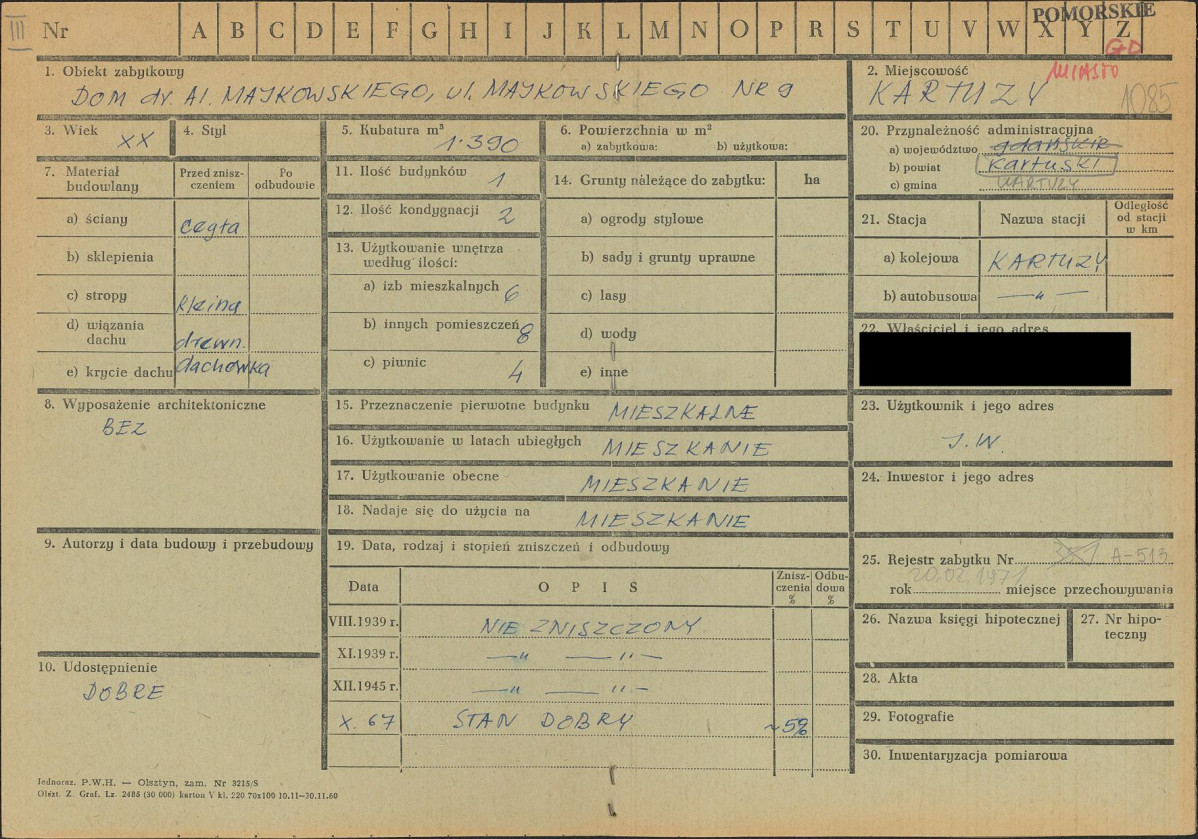 III Nr A B C D E F G H I J K L M N O P R S T U V W X Y Z
POMORSKIE
GD
MIASTO
1. Obiekt zabytkowy
DOM dr. Al. MAJKOWSKIEGO, ul. MAJKOWSKIEGO NR 9
2. Miejscowość
KARTUZY
1085
3. Wiek XX
4. Styl
5. Kubatura m³ 1.390
6. Powierzchnia w m²
a) zabytkowa: b) użytkowa:
20. Przynależność administracyjna
a) województwo gdańskie
b) powiat kartuski
c) gmina KARTUZY
7. Materiał budowlany
Przed zniszczeniem
Po odbudowie
a) ściany cegła
b) sklepienia
c) stropy kleina
d) wiązania dachu drewn.
e) krycie dachu dachówka
11. Ilość budynków 1
12. Ilość kondygnacji 2
13. Użytkowanie wnętrza
według ilości:
a) izb mieszkalnych 6
b) innych pomieszczeń 8
c) piwnic 4
14. Grunty należące do zabytku: ha
a) ogrody stylowe
b) sady i grunty uprawne
c) lasy
d) wody
e) inne
21. Stacja
Nazwa stacji
Odległość
od stacji
w km
a) kolejowa KARTUZY
b) autobusowa — „ —
22. Właściciel i jego adres
8. Wyposażenie architektoniczne
BEZ
15. Przeznaczenie pierwotne budynku MIESZKALNE
16. Użytkowanie w latach ubiegłych MIESZKANIE
17. Użytkowanie obecne MIESZKANIE
18. Nadaje się do użycia na MIESZKANIE
23. Użytkownik i jego adres
J.W.
24. Inwestor i jego adres
9. Autorzy i data budowy i przebudowy
19. Data, rodzaj i stopień zniszczeń i odbudowy
Data OPIS Zniszczenia % Odbudowa %
VIII.1939 r. NIE ZNISZCZONY
XI.1939 r. — „ — „ —
XII.1945 r. — „ — „ —
X. 67 STAN DOBRY ~5%
10. Udostępnienie
DOBRE
25. Rejestr zabytku Nr A-513
rok 20.02.1971 miejsce przechowywania
26. Nazwa księgi hipotecznej
27. Nr hipoteczny
28. Akta
29. Fotografie
30. Inwentaryzacja pomiarowa
Jednoraz. P.W.H. — Olsztyn, zam. Nr 3215/S
Olszt. Z. Graf. Lz. 2485 (30 000) karton V kl. 220 70x100 10.11—30.11.60